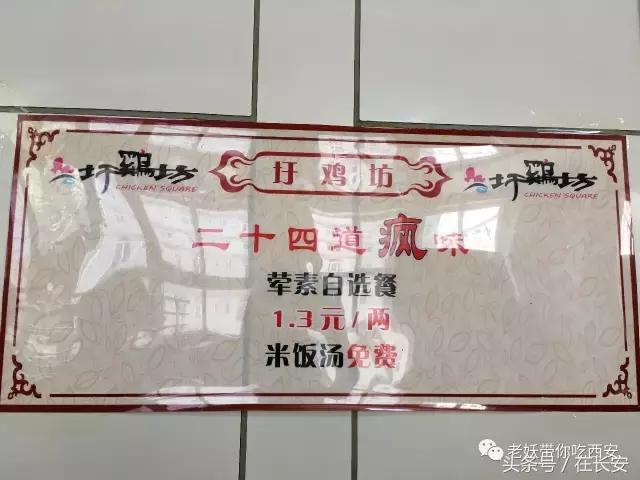 圩鷄坊
CHICKEN SQUARE
圩鸡坊
圩鷄坊
CHICKEN SQUARE
二十四道疯味
荤素自选餐
1.3元/两
米饭汤免费
老妖带你吃西安
头条号/在长安